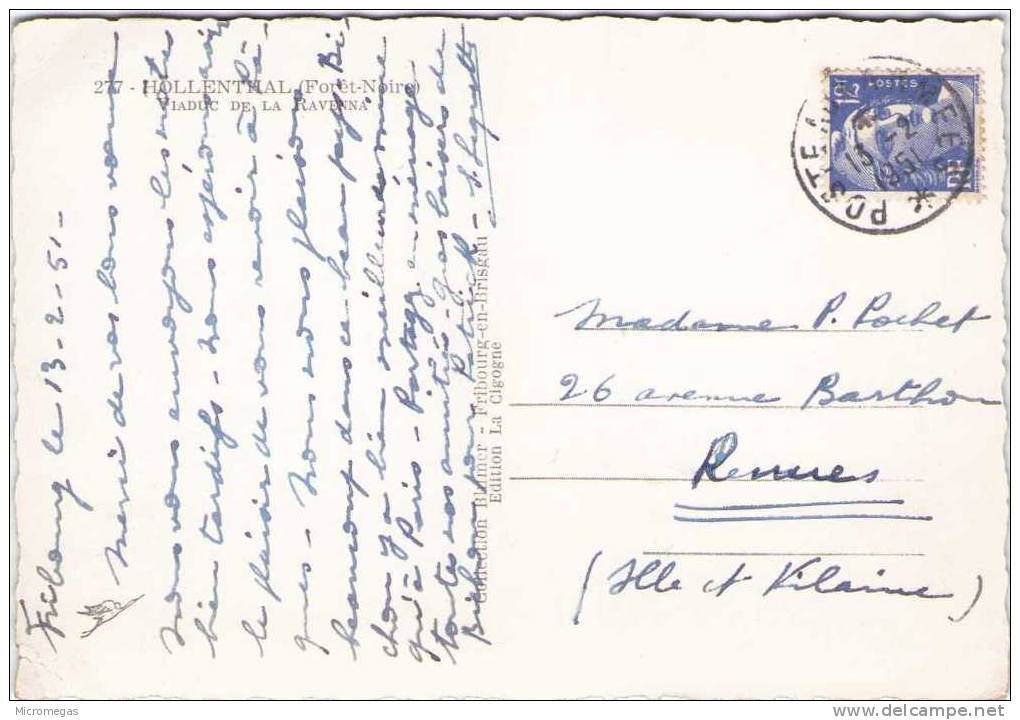 277 - HOLLENTHAL (Forêt-Noire)
VIADUC DE LA RAVENNA
Fribourg le 13-2-51-
Merci de vos bons voeux
Nous vous envoyons les nôtres
bien tardifs - Nous espérons avoir
le plaisir de vous revoir à Pâ-
ques - Nous nous plaisons
beaucoup dans ce beau pays. Bi-
chon y a bien meilleure mine
qu'à Paris - Partagez en ménage
toutes nos amitiés - gros baisers de
Bichon pour Patrick -
Collection Blümer - Fribourg-en-Brisgau
Edition La Cigogne
POSTES
POSTE AUX ARMEES
13 -2
1951
Madame P. Pochet
26 avenue Barthou
Rennes
(Ille et Vilaine)
Micromegas
www.delcampe.net